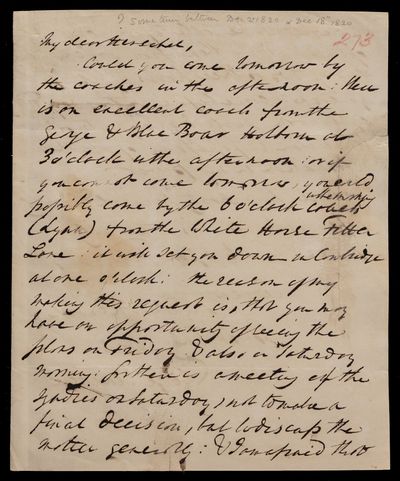 ? Some time between Dec 2d 1820 & Dec 18th 1820
273
My dear Herschel,
Could you come tomorrow by
the coaches in the afternoon: there
is an excellent coach from the
George & Blue Boar Holborn at
3 o'clock in the afternoon: or if
you cannot come tomorrow, you could
possibly come by the 6 o'clock coach
in the morning
(Lynn) from the White Horse Fetter
Lane: it will set you down in Cambridge
at one o'clock: the reason of my
making this request is, that you may
have an opportunity of seeing the
plans on Friday & also on Saturday
morning: for there is a meeting of the
Syndics on Saturday, not to make a
final decision, but to discuss the
matter generally: & I am afraid that